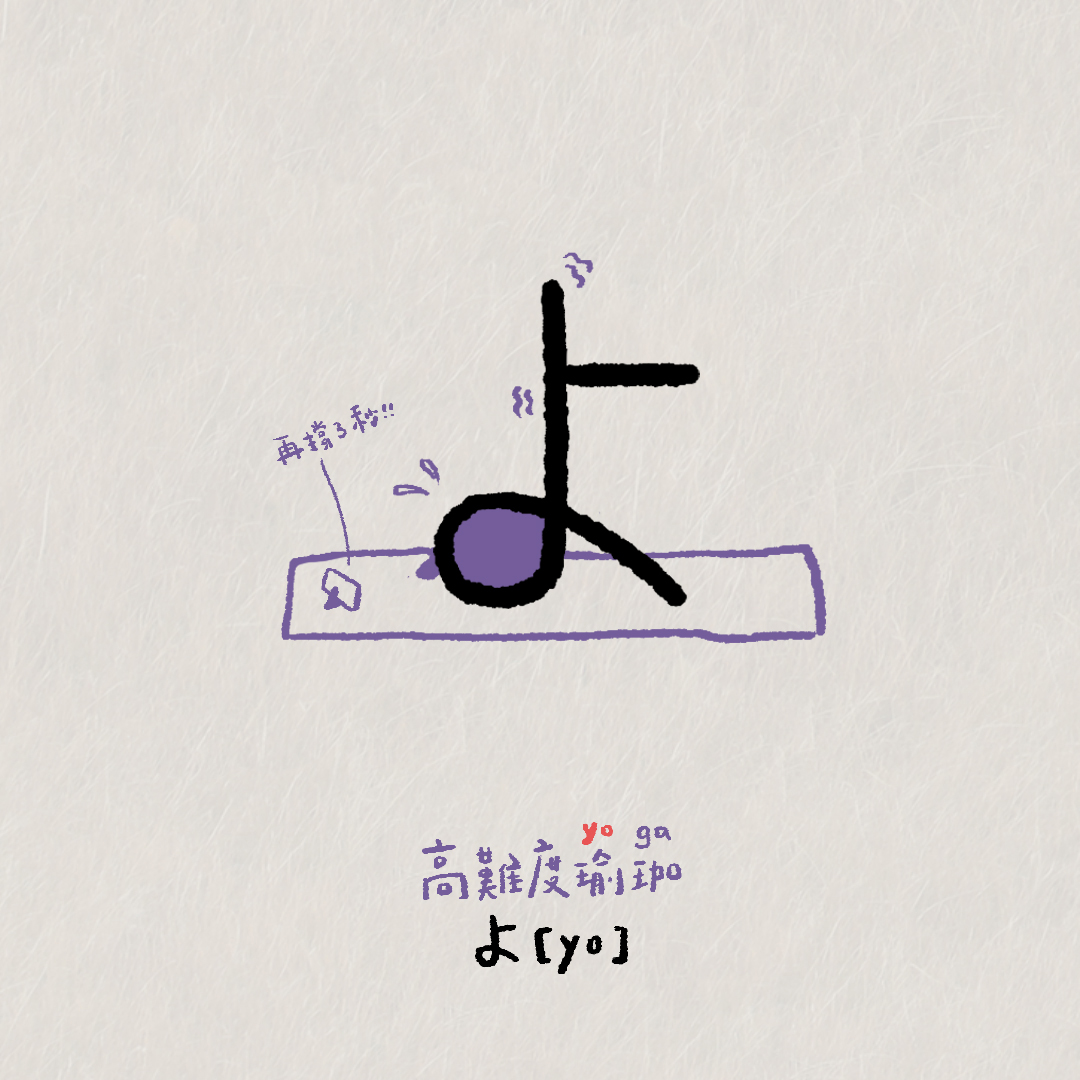 再撐3秒!!
yo ga
高難度瑜珈
よ[yo]